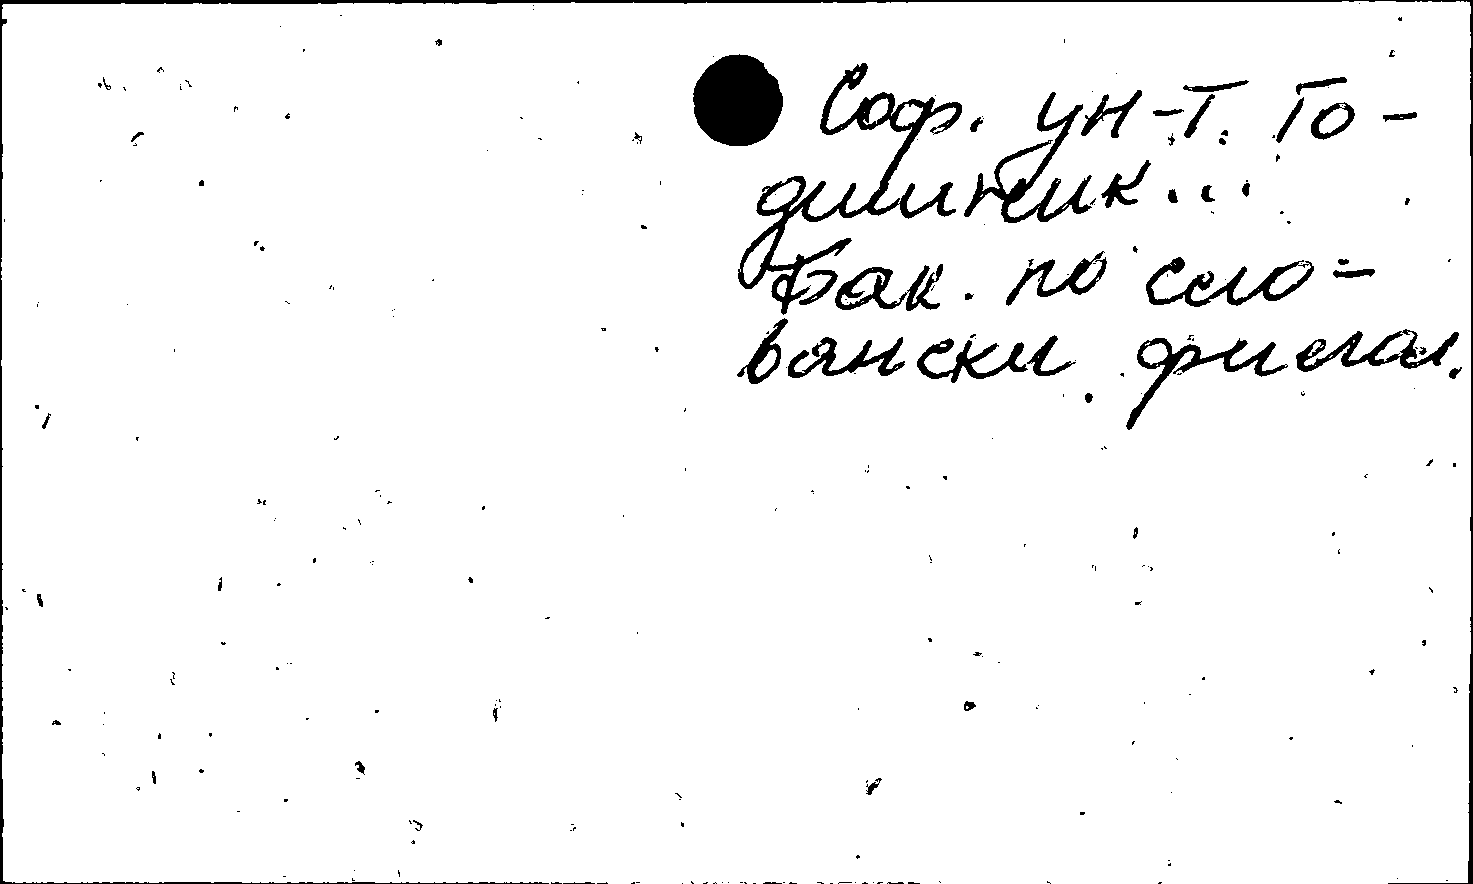 Соф. ун-т. Го-
дишник...
Фак. по сло-
вянски филол.